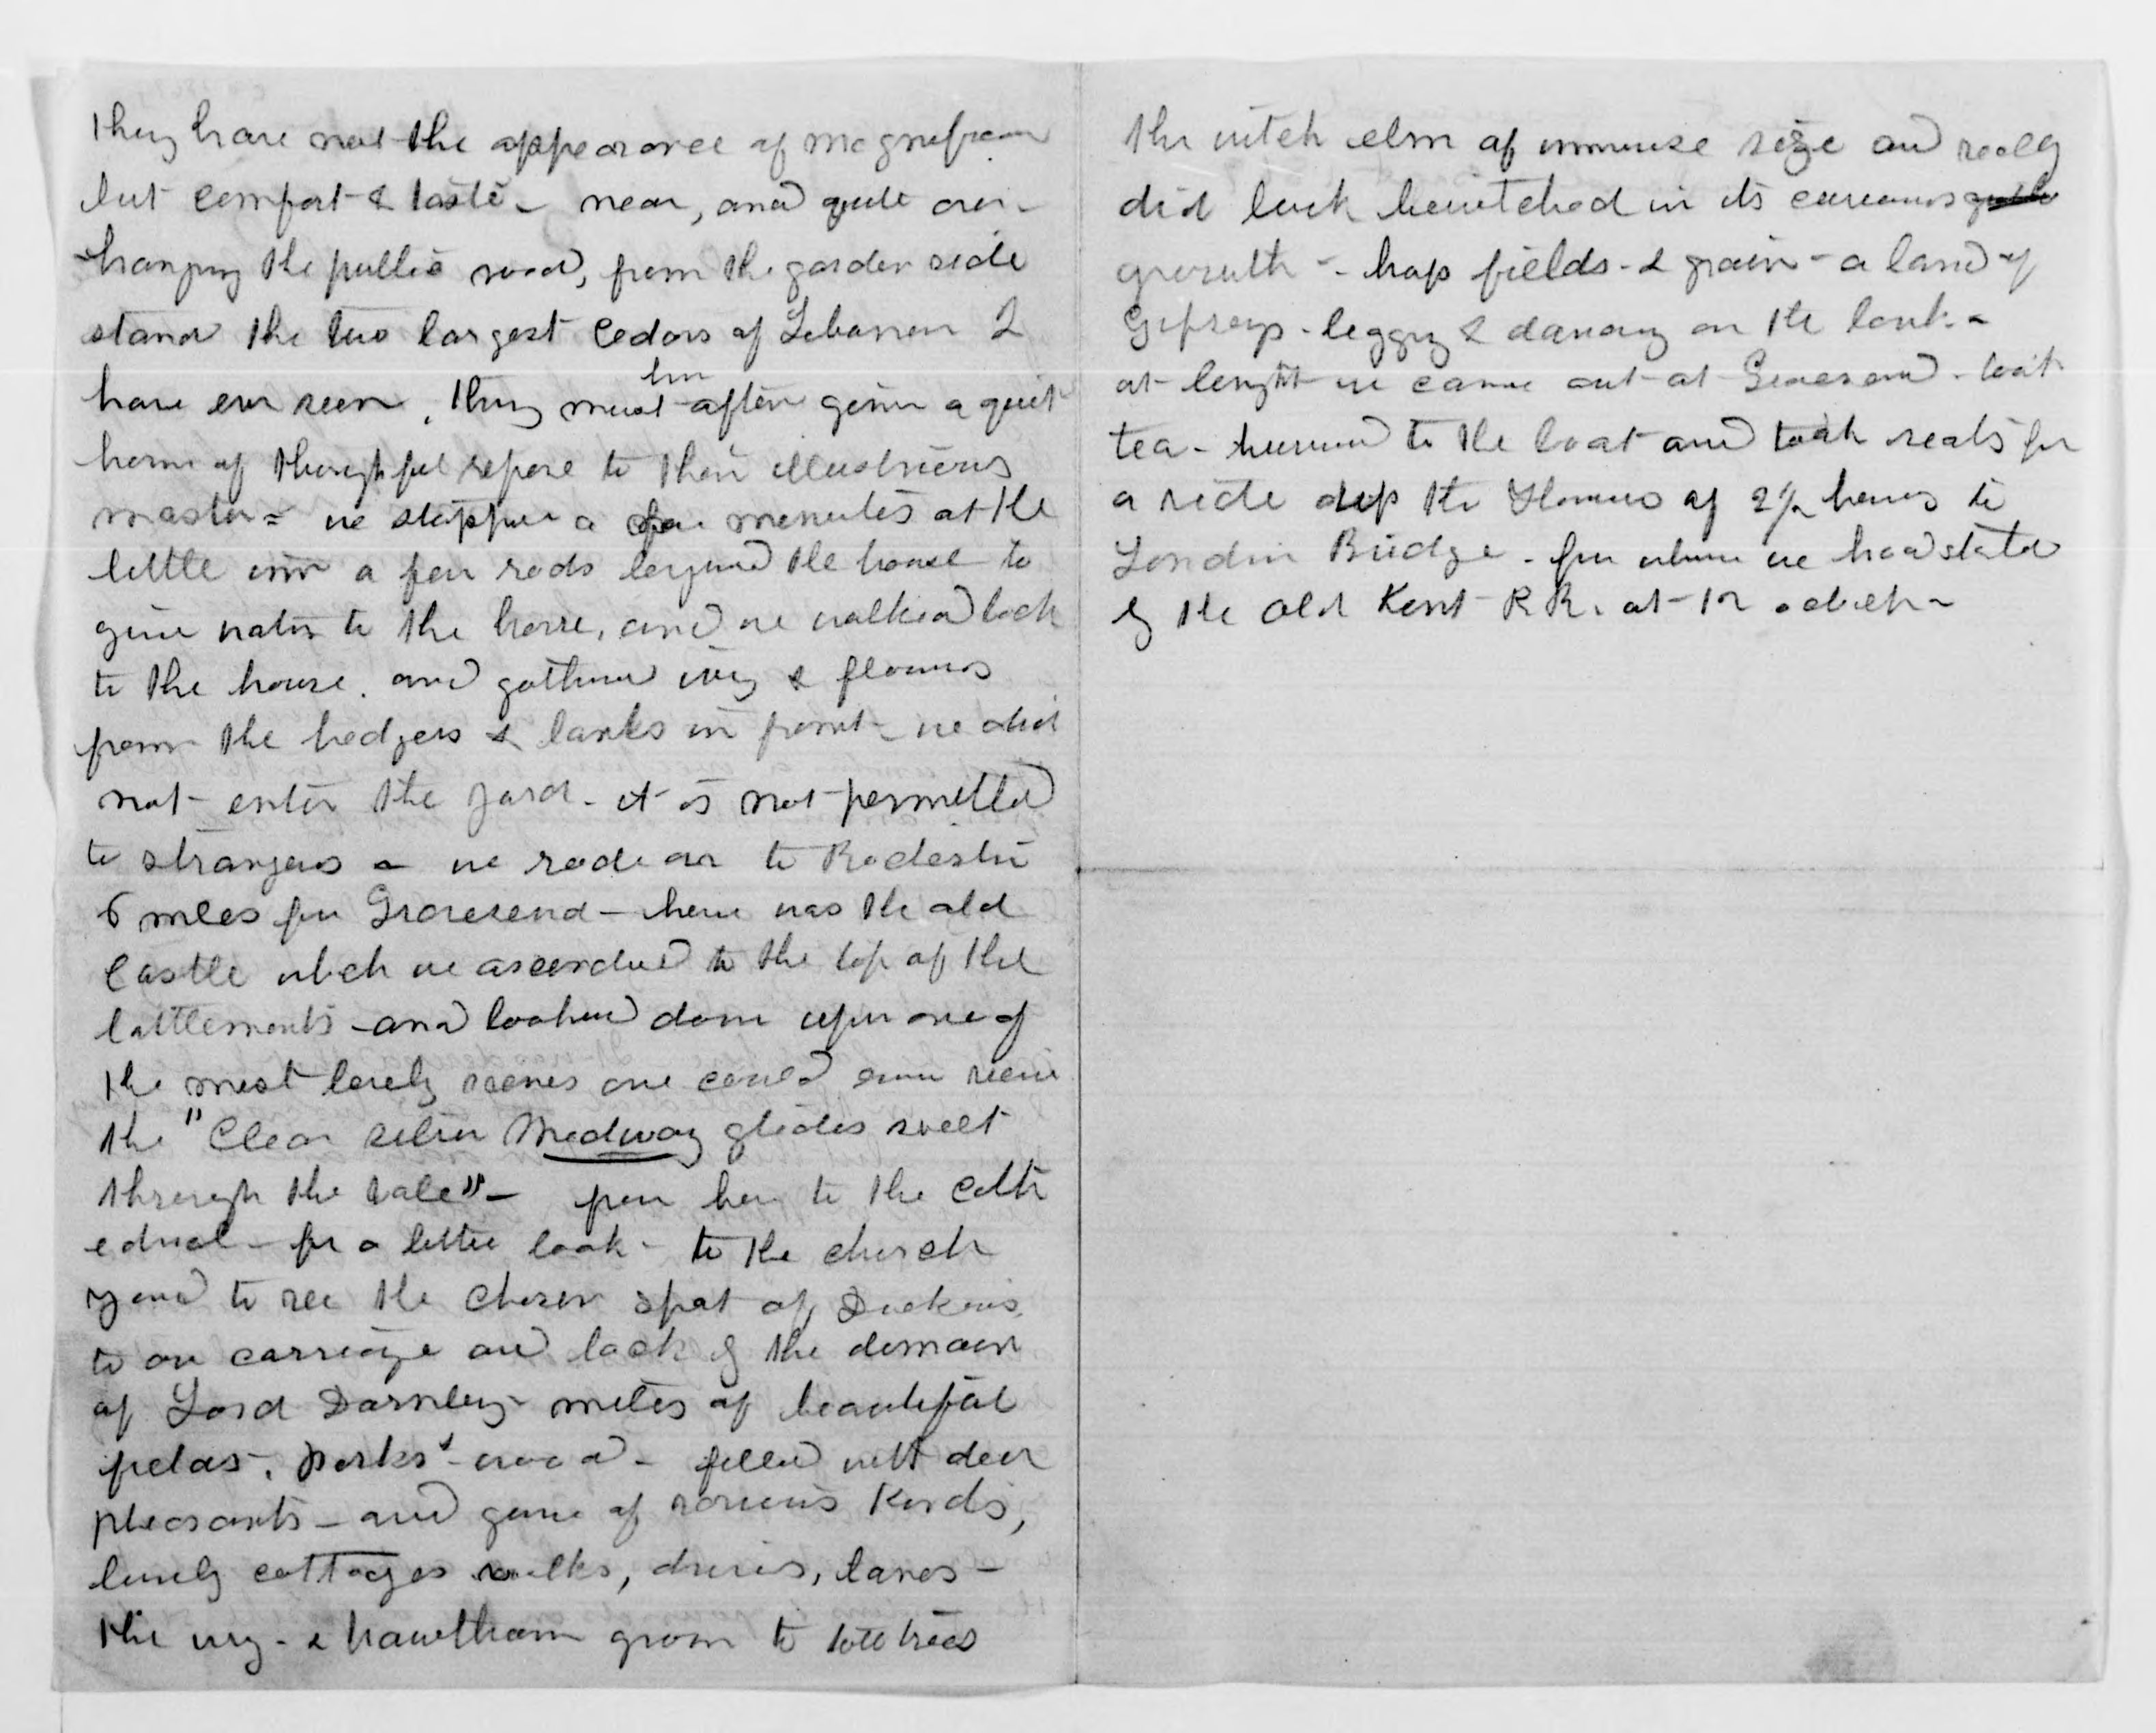 They have not the appearance of magnificence
but comfort & taste - near, and quite over-
-hanging the public road, from the garden side
stand the two largest Cedars of Lebanon I
have ever seen. They must often given a quiet
home of thoughtful repose to their illustrious
master = we stopped a few minutes at the
little inn a few rods beyond the house to
give water to the horse, and we walked back
to the house. and gathered ivy & flowers
from the hedgers & banks in front - we did
not - enter the yard - it is not permitted
to strangers - we rode on to Rochester
6 miles from Gravesend - here was the old
Castle which we ascended to the top of the
battlements - and looked down upon one of
the most lovely scenes one could ever
the "Clear silver Medway glides sweet
through the vale" - from here to the Cath
edral - for a little look - to the church
yard to see the chosen spot of Dickens.
to our carriage and back by the domain
of Lord Darnley - miles of beautiful
fields, parks & wood - filled with deer
pheasants - and game of various kinds,
lovely cottages walks, drives, lanes -
the ivy - & hawthorn grown to tall trees
the witch elm of immense size and really
did look bewitched in its curious
growth - hop fields - & grain - a land of
Gipseys - begging & dancing on the bank -
at length we came out at Gravesend - took
tea - hurried to the boat and took seats for
a ride up the Thames of 2½ hours to
London Bridge - from where we had started
by the Old Kent R.R. at 12 oclock -